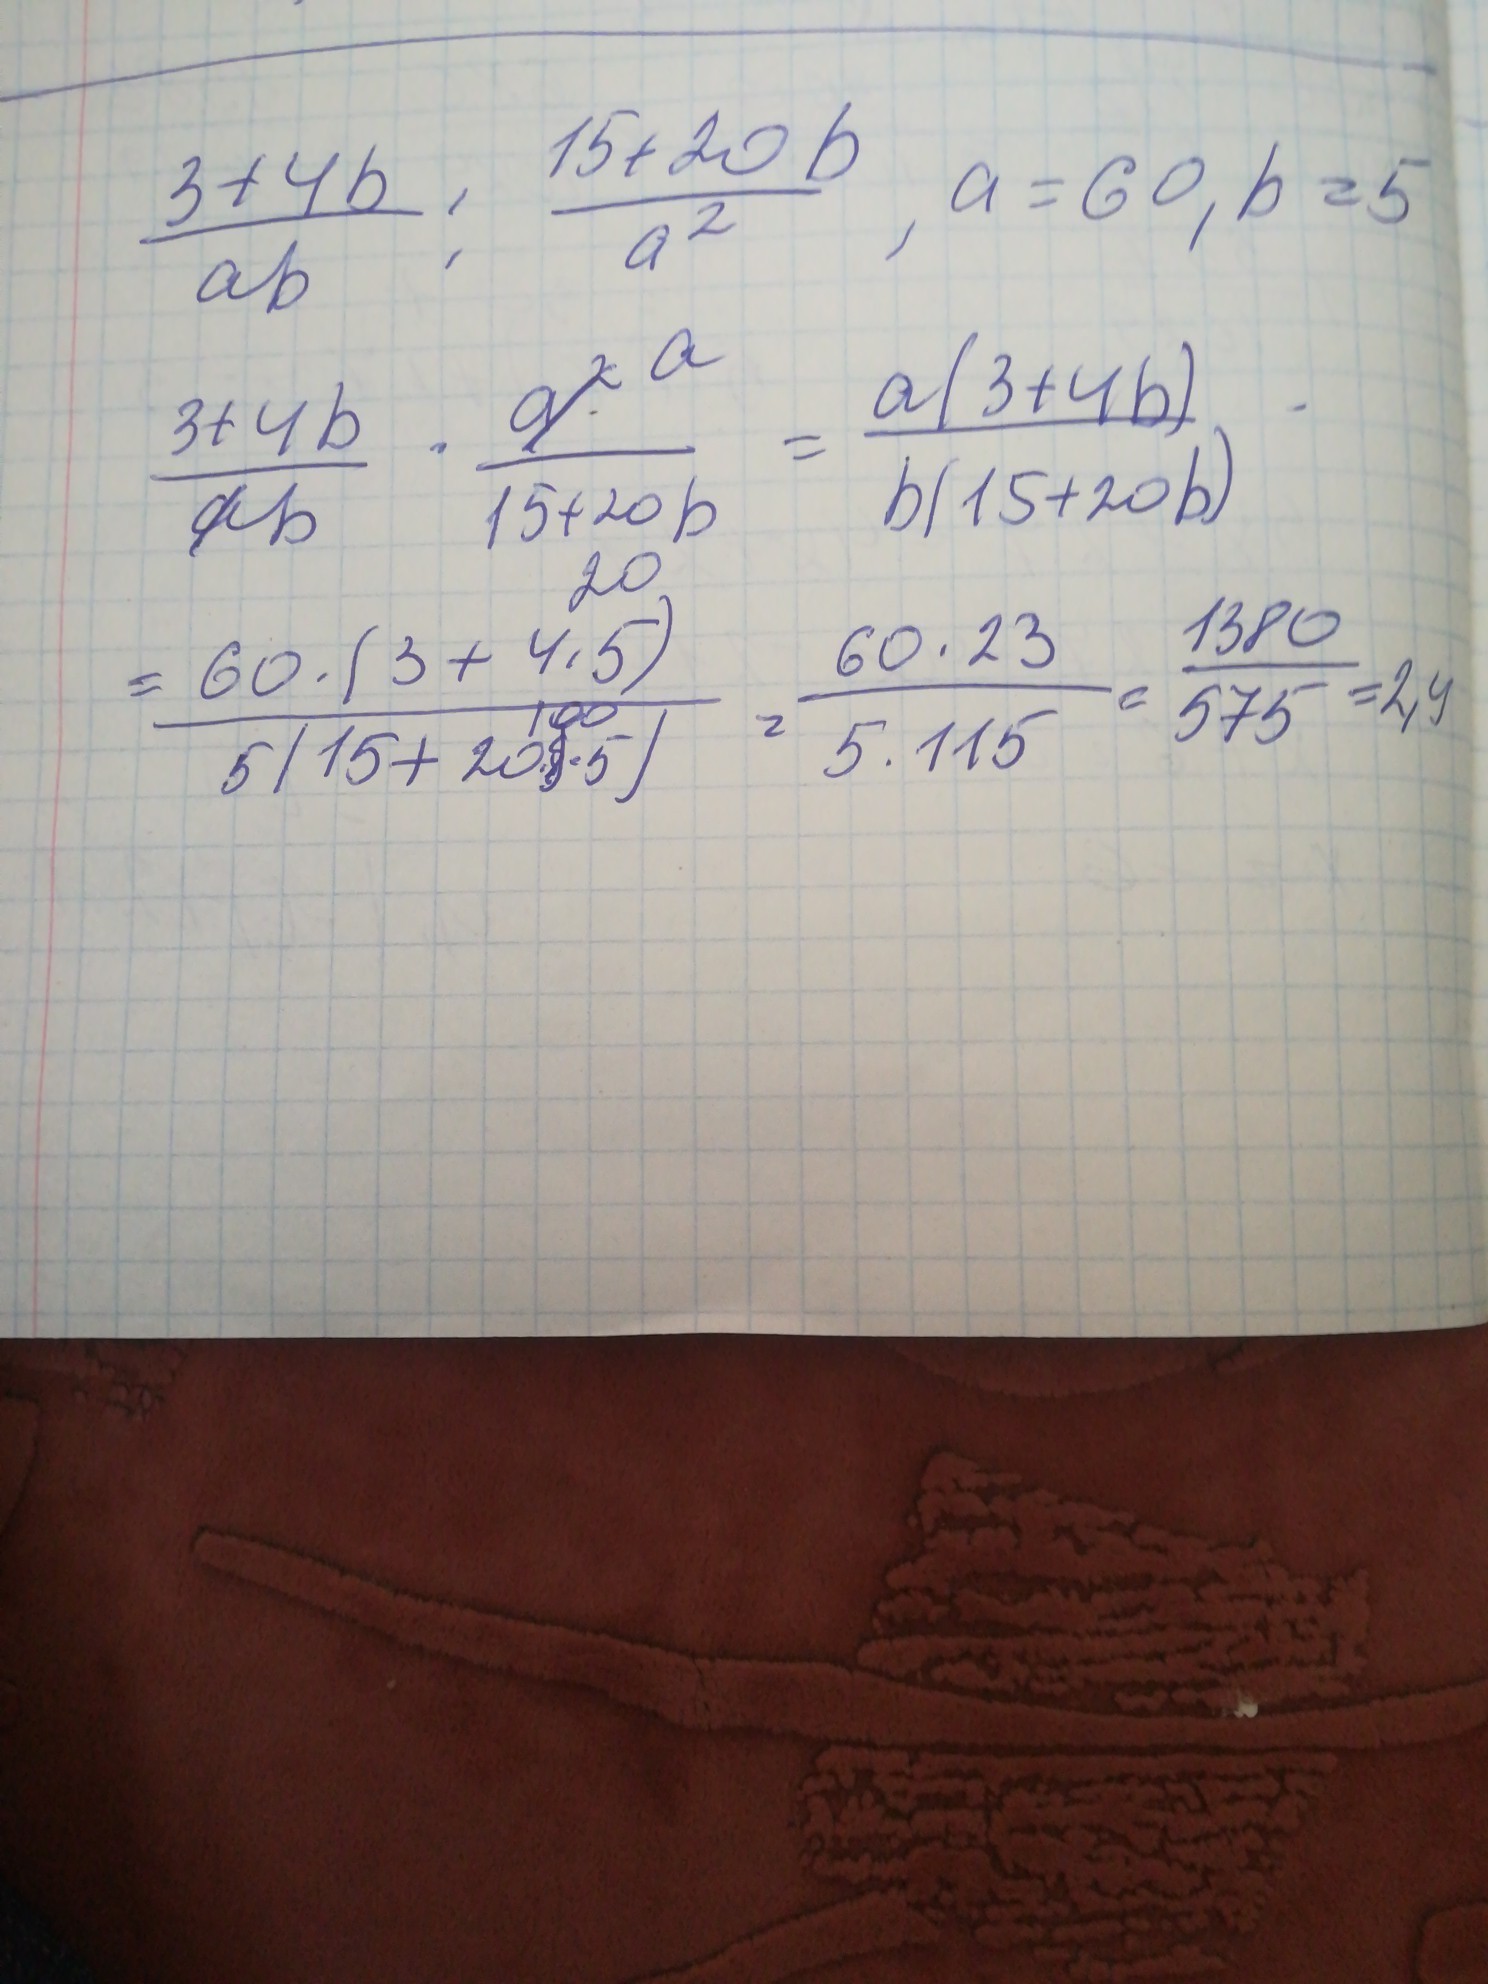 3+4b/ab : 15+20b/a², a=60, b=5
3+4b/ab · a² a/15+20b = a(3+4b)/b(15+20b)
20
= 60·(3+4·5)/5(15+20·5) = 60·23/5·115 = 1380/575 = 2,4
100